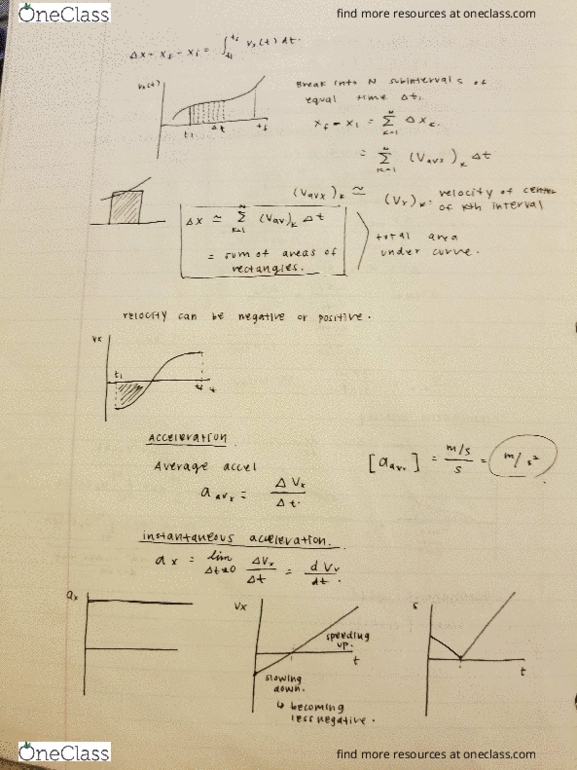 OneClass
find more resources at oneclass.com
Δx = x_f - x_i = ∫ v_x(t) dt.
v_x(t)
t_i Δt t_f
Break into N subintervals of
equal time Δt.
x_f - x_i = Σ Δx_k.
= Σ (V_avx)_k Δt
(V_avx)_k ≃ (V_x)_k. velocity of center
of kth interval
Δx ≃ Σ (V_av)_k Δt
= sum of areas of
rectangles.
total area
under curve.
velocity can be negative or positive.
Vx
t_i t
Acceleration
Average accel
a_avx = ΔV_x / Δt.
[a_avx] = m/s / s = m/s²
instantaneous acceleration.
a x = lim Δt→0 ΔV_x / Δt = dV_x / dt.
a_x
Vx
speeding
up.
t
slowing
down.
↳ becoming
less negative.
s
t
OneClass
find more resources at oneclass.com